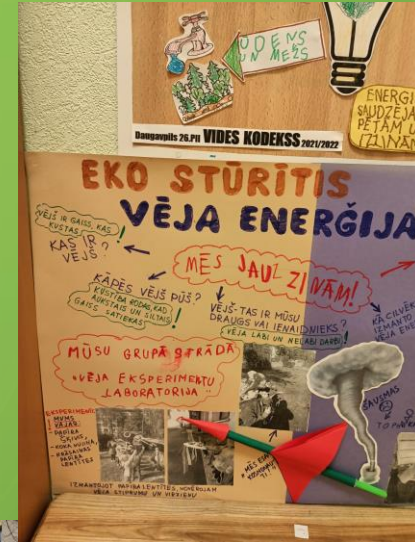 ŪDENS
UN MEŽS
ENERĢI
SAUDZĒJA
PĒTĀM
Daugavpils 26.PII VIDES KODEKSS 2021/2022
EKO STŪRĪTIS
VĒJA ENERĢIJA
VĒJŠ IR GAISS, KAS
KUSTAS
KAS IR
VĒJŠ?
MĒS JAU ZINĀM!
KĀPĒC VĒJŠ PŪŠ?
KUSTĪBA RODAS, KAD
AUKSTAIS UN SILTAIS
GAISS SATIEKAS
VĒJŠ-TAS IR MŪSU
DRAUGS VAI IENAIDNIEKS?
VĒJA LABI UN NELABI DARBI
KĀ CILVĒK
IZMANTO
VĒJA ENE
MŪSU GRUPĀ STRĀDĀ
"VĒJA EKSPERIMENTU
LABORATORIJA"
EKSPERIMENTI
PAPĪRA
LENTĪTES
MĒS ESAM
IZMANTOJOT PAPĪRA LENTĪTES, NOVĒROJAM
VĒJA STIPRUMU UN VIRZIENU